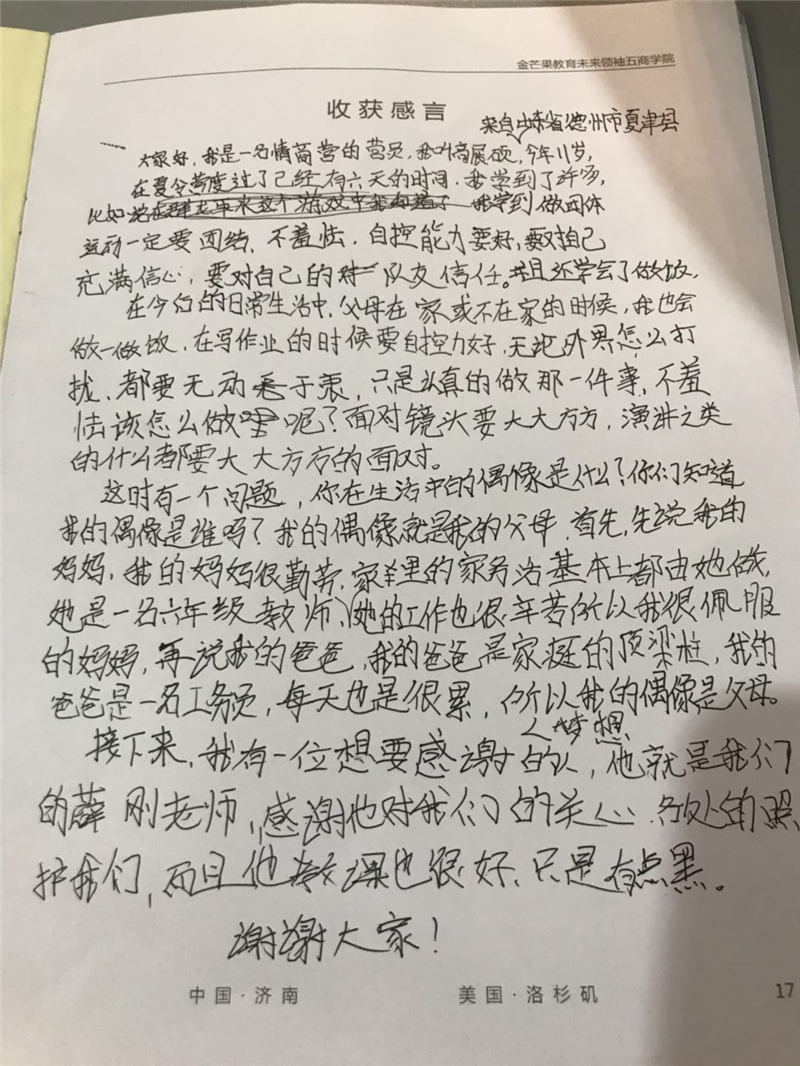 金芒果教育未来领袖五商学院
收获感言
来自山东省德州市夏津县
大家好，我是一名情商营的营员，我叫高展硕，今年11岁，
在夏令营度过了已经有六天的时间。我学到了许多，
比如 我学到做团体
运动一定要团结，不羞怯，自控能力要好，要对自己
充满信心，要对自己的队友信任。并且还学会了做饭，
在今后的日常生活中，父母在家或不在家的时候，我也会
做一做饭，在写作业的时候要自控力好，无论外界怎么打
扰，都要无动于衷，只是认真的做那一件事，不羞
怯该怎么做呢？面对镜头要大大方方，演讲之类
的什么都要大大方方的面对。
这时有一个问题，你在生活中的偶像是什么？你们知道
我的偶像是谁吗？我的偶像就是我的父母，首先，先说我的
妈妈，我的妈妈很勤劳，家里的家务活基本上都由她做，
她是一名六年级教师，她的工作也很辛苦所以我很佩服
的妈妈，再说我的爸爸，我的爸爸是家庭的顶梁柱，我的
爸爸是一名工务员，每天也是很累，所以我的偶像是父母。
人梦想
接下来，我有一位想要感谢的人，他就是我们
的薛刚老师，感谢他对我们的关心，各处的照
护我们，而且他教课也很好，只是有点黑。
谢谢大家！
中国·济南
美国·洛杉矶
17